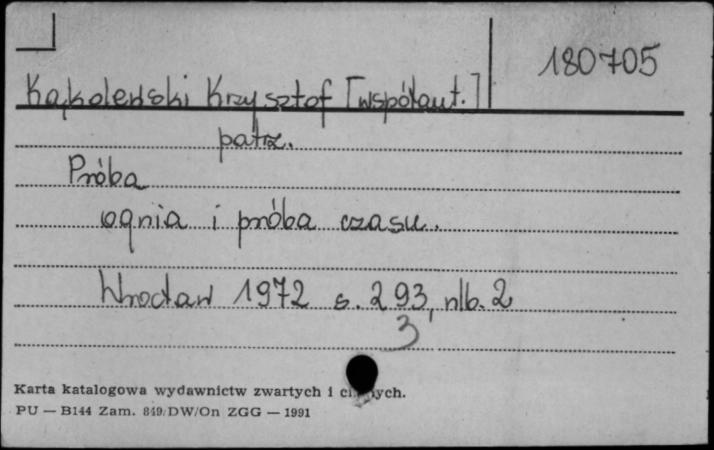 180705
Kąkolewski Krzysztof [współaut.]
patrz.
Próba
ognia i próba czasu.
Wrocław 1972 s. 293, nlb. 2
3
Karta katalogowa wydawnictw zwartych i ych.
PU — B144 Zam. 849/DW/On ZGG — 1991